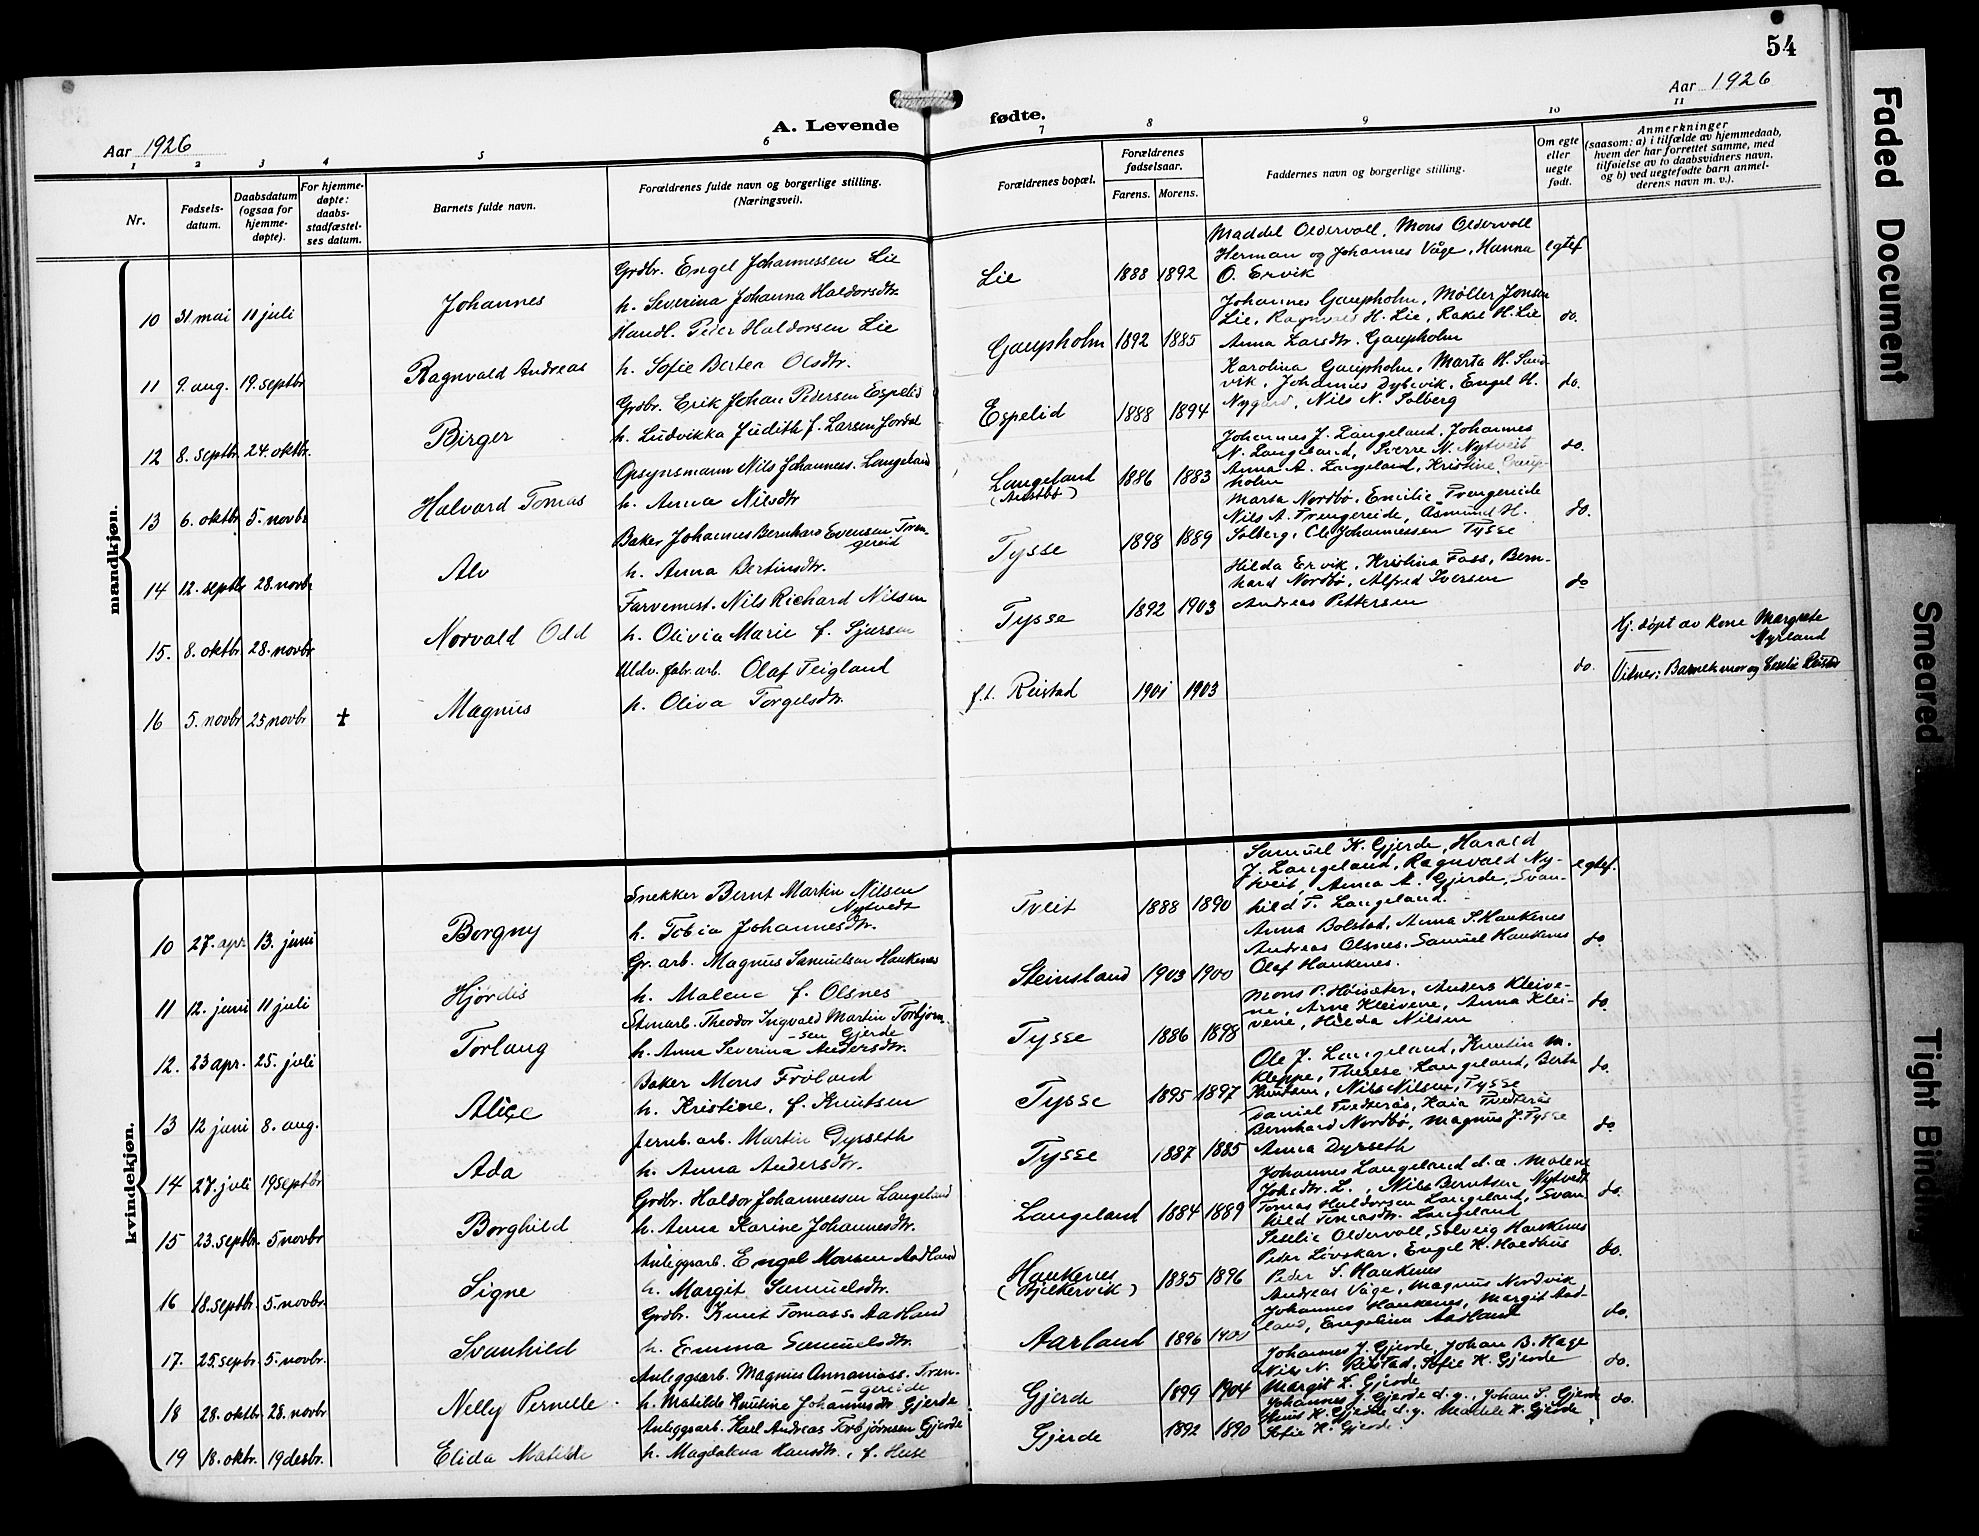 54
Aar 1926
A. Levende
fødte.
Aar 1926
1 2 3 4 5 6 7 8 9 10 11
Nr.
Fødsels-
datum.
Daabsdatum
(ogsaa for
hjemme-
døpte).
For hjemme-
døpte:
daabs-
stadfæstel-
ses datum.
Barnets fulde navn.
Forældrenes fulde navn og borgerlige stilling.
(Næringsvei).
Forældrenes bopæl.
Forældrenes
fødselsaar.
Farens. Morens.
Faddernes navn og borgerlige stilling.
Om egte
eller
uegte
født.
Anmerkninger
(saasom: a) i tilfælde av hjemmedaab,
hvem der har forrettet samme, med
tilføielse av to daabsvidners navn,
og b) ved uegtefødte barn anmel-
derens navn m. v.).
mandkjøn.
10 31 mai 11 juli Johannes
Grdbr. Engel Johannessen Lie
h. Severina Johanna Haldorsdtr.
Lie 1888 1892
Maddel Oldervoll, Mons Oldervoll
Herman og Johannes Våge, Hanna
O. Ervik
egtef
11 9. aug. 19. septbr Ragnvald Andreas
Handl. Peder Haldorsen Lie
h. Sofie Bertea Olsdtr.
Gaupholm 1892 1885
Johannes Gaupholm, Møller Jonsen
Lie, Ragnvald H. Lie, Rakel H. Lie
Anna Larsdtr. Gaupholm
do.
12 8. septbr 24. oktbr. Birger
Grdbr. Erik Johan Pedersen Espelid
h. Ludvikka Judith f. Larsen Jordal
Espelid 1888 1894
Karolina Gaupholm, Marta H. Sand-
vik, Johannes Dybvik, Engel H.
Nygård, Nils N. Solberg
do.
13 6. oktbr 5. novbr Halvard Tomas
Opsynsmann Nils Johanness. Langeland
h. Anna Nilsdtr
Langeland
(Austbø)
1886 1883
Johannes J. Langeland, Johannes
N. Langeland, Sverre N. Nytveit
Anna A. Langeland, Kristine Gaup-
holm
do.
14 12. septbr 28. novbr Alv
Baker Johannes Bernhard Evensen Tren-
gereid
h. Anna Bertinsdtr.
Tysse 1898 1889
Marta Nordbø, Emilie Trengereide
Nils A. Trengereide, Asmund H.
Solberg, Ole Johannessen Tysse
do.
15. 8. oktbr. 28. novbr Norvald Odd
Farvemest. Nils Richard Nilsen
h. Olivia Marie f. Sjursen
Tysse 1892 1903
Hilda Ervik, Kristina Foss, Bern-
hard Nordbø, Alfred Iversen
Andreas Pettersen
do
16 5. novbr 25 novbr ✝ Magnus
Uldv. fabr. arb. Olaf Teigland
h. Oliva Torgelsdtr.
f.t. Reistad 1901 1903
do.
Hj. døpt av kone Margrete
Myrland
Vitner: Barnets mor og Reistad
kvindekjøn.
10 27. apr. 13. juni Borgny
Snekker Bernt Martin Nilsen
Nytvedt
h. Tobia Johannesdtr.
Tveit 1888 1890
Samuel K. Gjerde, Harald
J. Langeland, Ragnvald Ny-
tveit, Anna A. Gjerde, Svan-
hild T. Langeland.
egtef.
11 12. juni 11 juli Hjørdis
Gr. arb. Magnus Samuelsen Haukenes
h. Malene f. Olsnes
Steinsland 1903 1900
Anna Bolstad, Anna S. Haukenes
Andreas Olsnes, Samuel Haukenes
Olaf Haukenes.
do
12. 23 apr. 25. juli Torlaug
Stenarb. Theodor Ingvald Martin Torbjørn-
sen Gjerde
h. Anna Severina Andersdtr.
Tysse 1886 1898
Mons P. Høisæter, Anders Kleive-
ne, Arne Kleivene, Anna Klei-
vene, Hilda Nilsen
do.
13 12 juni 8. aug. Alice
Baker Mons Frøland
h. Kristine, f. Knutsen
Tysse 1895 1897
Ole J. Langeland, Knutin M.
Kleppe, Therese Langeland, Berta
Knutsen, Nils Nilsen, Tysse
do.
14 27. juli 19 septbr Ada
Jernb. arb. Martin Dyrseth
h. Anna Andersdtr.
Tysse 1887 1885
Daniel Tvedterås, Kaia Tvedterås
Bernhard Nordbø, Magnus J. Tysse
Anna Dyrseth
do.
15 23. septbr. 5 novbr Borghild
Grdbr. Haldor Johannessen Langeland
h. Anna Karine Johannesdtr.
Langeland 1884 1889
Johannes Langeland d.e. Malene
Johsdtr. L., Nils Berntsen Nytvedt
Tomas Haldorsen Langeland, Svan-
hild Tomasdtr. Langeland
do.
16 18. septbr. 5. novbr. Signe
Anleggsarb. Engel Monsen Aadland
h. Margit Samuelsdtr.
Haukenes
(Bjelkervik)
1885 1896
Seselie Oldervoll, Solveig Haukenes
Peder Løvskar, Engel K. Hoedhus
Peder S. Haukenes
do.
17. 25. sepbr. 5. novbr. Svanhild
Grdbr. Knut Tomass. Aadland
h. Emma Samuelsdtr.
Aarland 1896 1900
Andreas Våge, Magnus Nordvik
Johannes Haukenes, Margit Aad-
land, Engelina Aadland
do.
18 28. oktbr 28. novbr Nelly Pernelle
Anleggsarb. Magnus Annaniass. Tren-
gereide
h. Matilde Knutine Johannesdtr. Gjerde
Gjerde 1899 1904
Johannes J. Gjerde, Johan B. Hage
Nils N. Reistad, Sofie K. Gjerde
Margit K. Gjerde
do.
19 18. okbr. 19 desbr. Elida Matilde
Anleggsarb. Karl Andreas Torbjørnsen Gjerde
h. Magdalena Hansdtr., f. Huse
Gjerde 1892 1890
Johannes J. Gjerde d.y., Johan S. Gjerde
K. Gjerde d.y. Matilde K. Gjerde
Sofie K. Gjerde.
do.
Faded Document
Smeared
Tight Binding